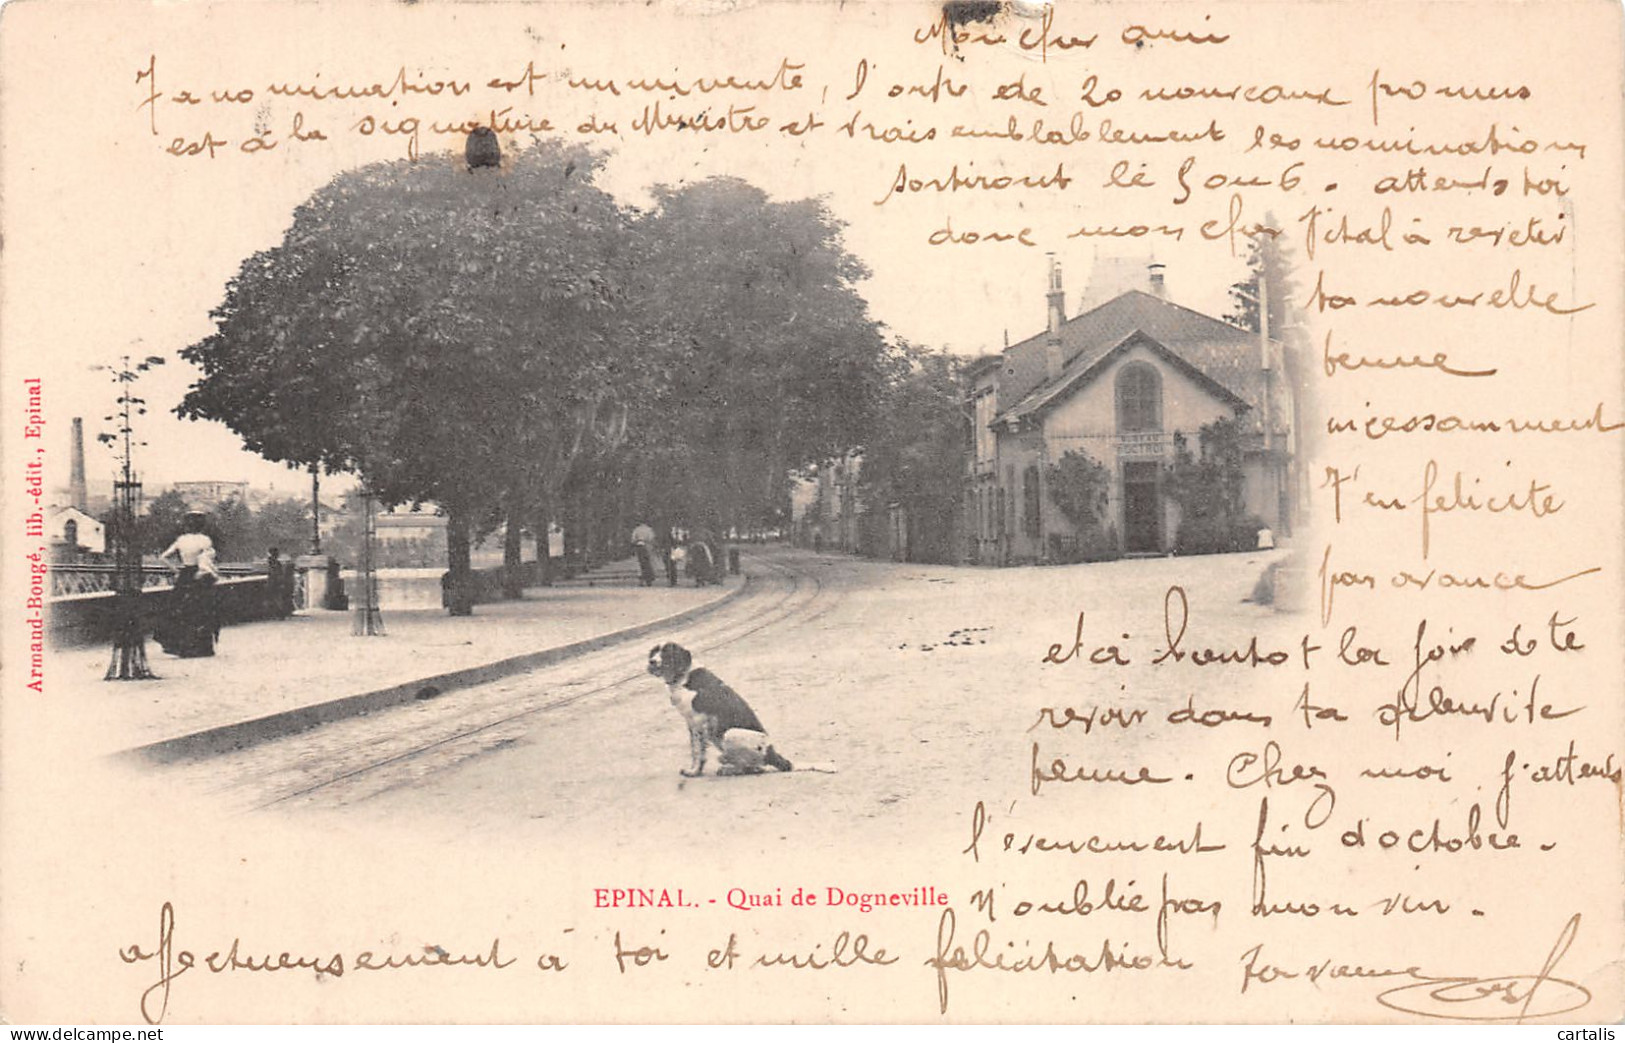 Mon cher ami
Ta nomination est imminente, l'ordre de 20 nouveaux promus
est à la signature du Ministre et vraisemblablement les nominations
sortiront le 5 ou 6. attends toi
donc mon cher Vital à revetir
ta nouvelle
tenue
incessamment
J'en felicite
par avance
et à bientot la joie de te
revoir dans ta
tenue. Chez moi j'attends
l'évenement fin d'octobre.
N'oublie pas mon vin.
affectueusement à toi et mille felicitation
BUREAU
D'OCTROI
EPINAL. - Quai de Dogneville
Armand-Bougé, lib.-édit., Epinal
cartalis